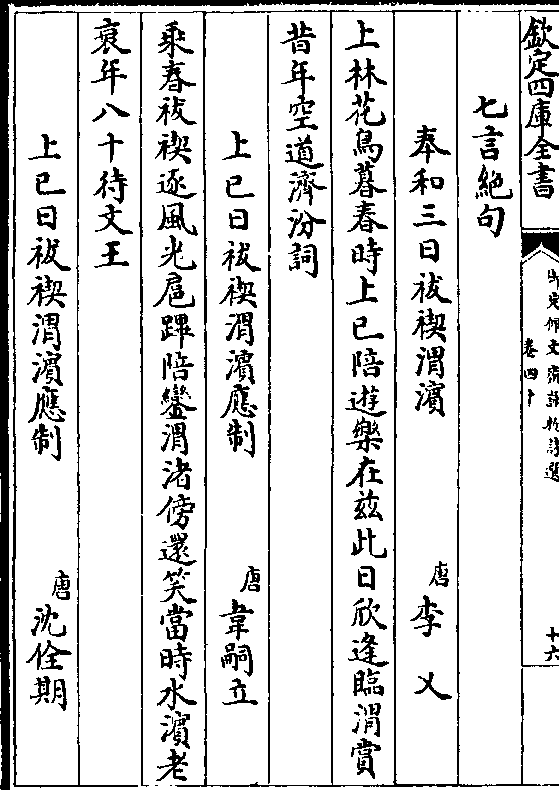 欽定四庫全書
御定佩文齋詠物詩選
卷四十
十六
七言絶句
奉和三日祓禊渭濱
唐 李乂
上林花鳥暮春時上巳陪遊樂在兹此日欣逢臨渭賞
昔年空道濟汾詞
上巳日祓禊渭濱應制
唐 韋嗣立
乘春祓禊逐風光扈蹕陪鑾渭渚傍還笑當時水濱老
衰年八十待文王
上巳日祓禊渭濱應制
唐 沈佺期